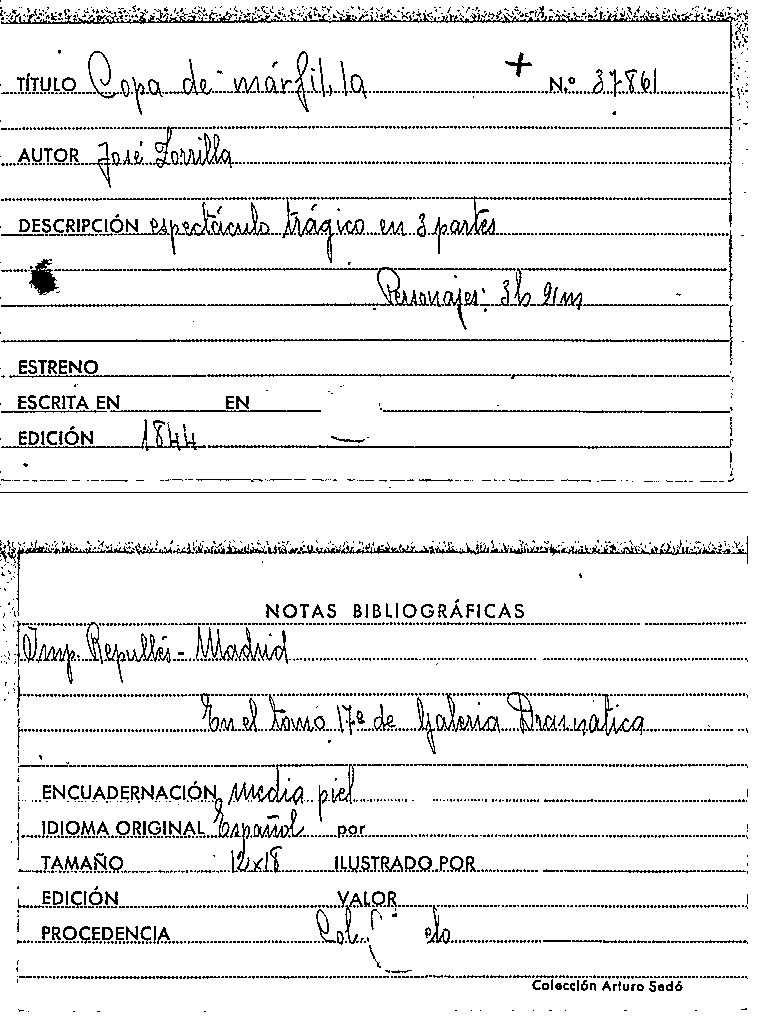 TÍTULO Copa de marfil, la N.º 37861
AUTOR José Zorrilla
DESCRIPCIÓN espectáculo trágico en 3 partes
Personajes: 3h 9/m
ESTRENO
ESCRITA EN EN
EDICIÓN 1844
NOTAS BIBLIOGRÁFICAS
Imp. Repullés - Madrid
En el tomo 17º de Galeria Dramática
ENCUADERNACIÓN media piel
IDIOMA ORIGINAL Español por
TAMAÑO 12x18 ILUSTRADO POR
EDICIÓN VALOR
PROCEDENCIA Col.
Colección Arturo Sedó